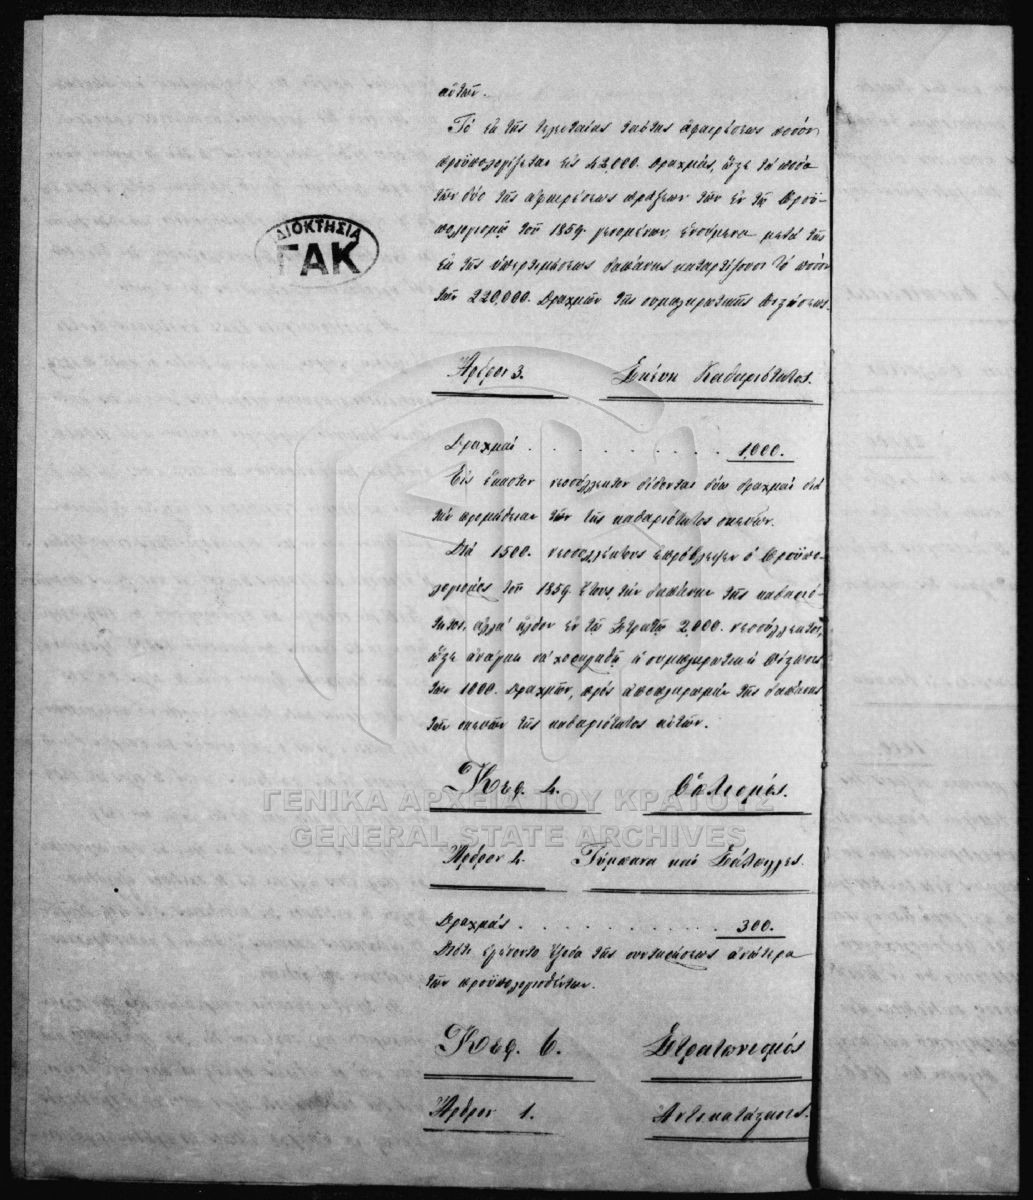 αὐτῶν.
Τό ἐκ τῆς τελευταίας ταύτης ἀφαιρέσεως ποσόν
προϋπολογίζεται εἰς 42,000. δραχμάς, ὥστε τά ποσά
τῶν δύο τῆς ἀφαιρέσεως πράξεων τῶν ἐν τῷ Προϋ-
πολογισμῷ τοῦ 1859. γενομένων, ἑνούμενα μετά τῆς
ἐκ τῆς ὑπερτιμήσεως δαπάνης καταρτίζουσι τό ποσόν
τῶν 220,000. Δραχμῶν τῆς συμπληρωτικῆς πιστώσεως.
ΙΔΙΟΚΤΗΣΙΑ
ΓΑΚ
Ἄρθρον 3. Σκεύη Καθαριότητος.
Δραχμαί . . . . . . . . . . . 1,000.
Εἰς ἕκαστον νεοσύλλεκτον δίδονται δύω δραχμαί διά
τήν προμήθειαν τῶν τῆς καθαριότητος σκευῶν.
Διά 1500. νεοσυλλέκτους ἐπρόβλεψεν ὁ Προϋπο-
λογισμός τοῦ 1859. ἔτους τήν δαπάνην τῆς καθαριό-
τητος, ἀλλά ἦλθον ἐν τῷ Στρατῷ 2,000. νεοσύλλεκτοι,
ὥστε ἀνάγκη νά χορηγηθῇ ἡ συμπληρωτική πίστωσις
τῶν 1000. Δραχμῶν, πρός ἀποπλήρωσιν τῆς δαπάνης
τῶν σκευῶν τῆς καθαριότητος αὐτῶν.
Κεφ. 4. Ὁπλισμός.
ΓΕΝΙΚΑ ΑΡΧΕΙΑ ΤΟΥ ΚΡΑΤΟΥΣ
GENERAL STATE ARCHIVES
Ἄρθρον 4. Τύμπανα καί Σάλπιγγες.
Δραχμάς . . . . . . . . . . . 300.
Διότι ἐγένοντο ἔξοδα τῆς συντηρήσεως ἀνώτερα
τῶν προϋπολογισθέντων.
Κεφ. 6. Στρατωνισμός
Ἄρθρον 1. Ἀντικατάστασις.